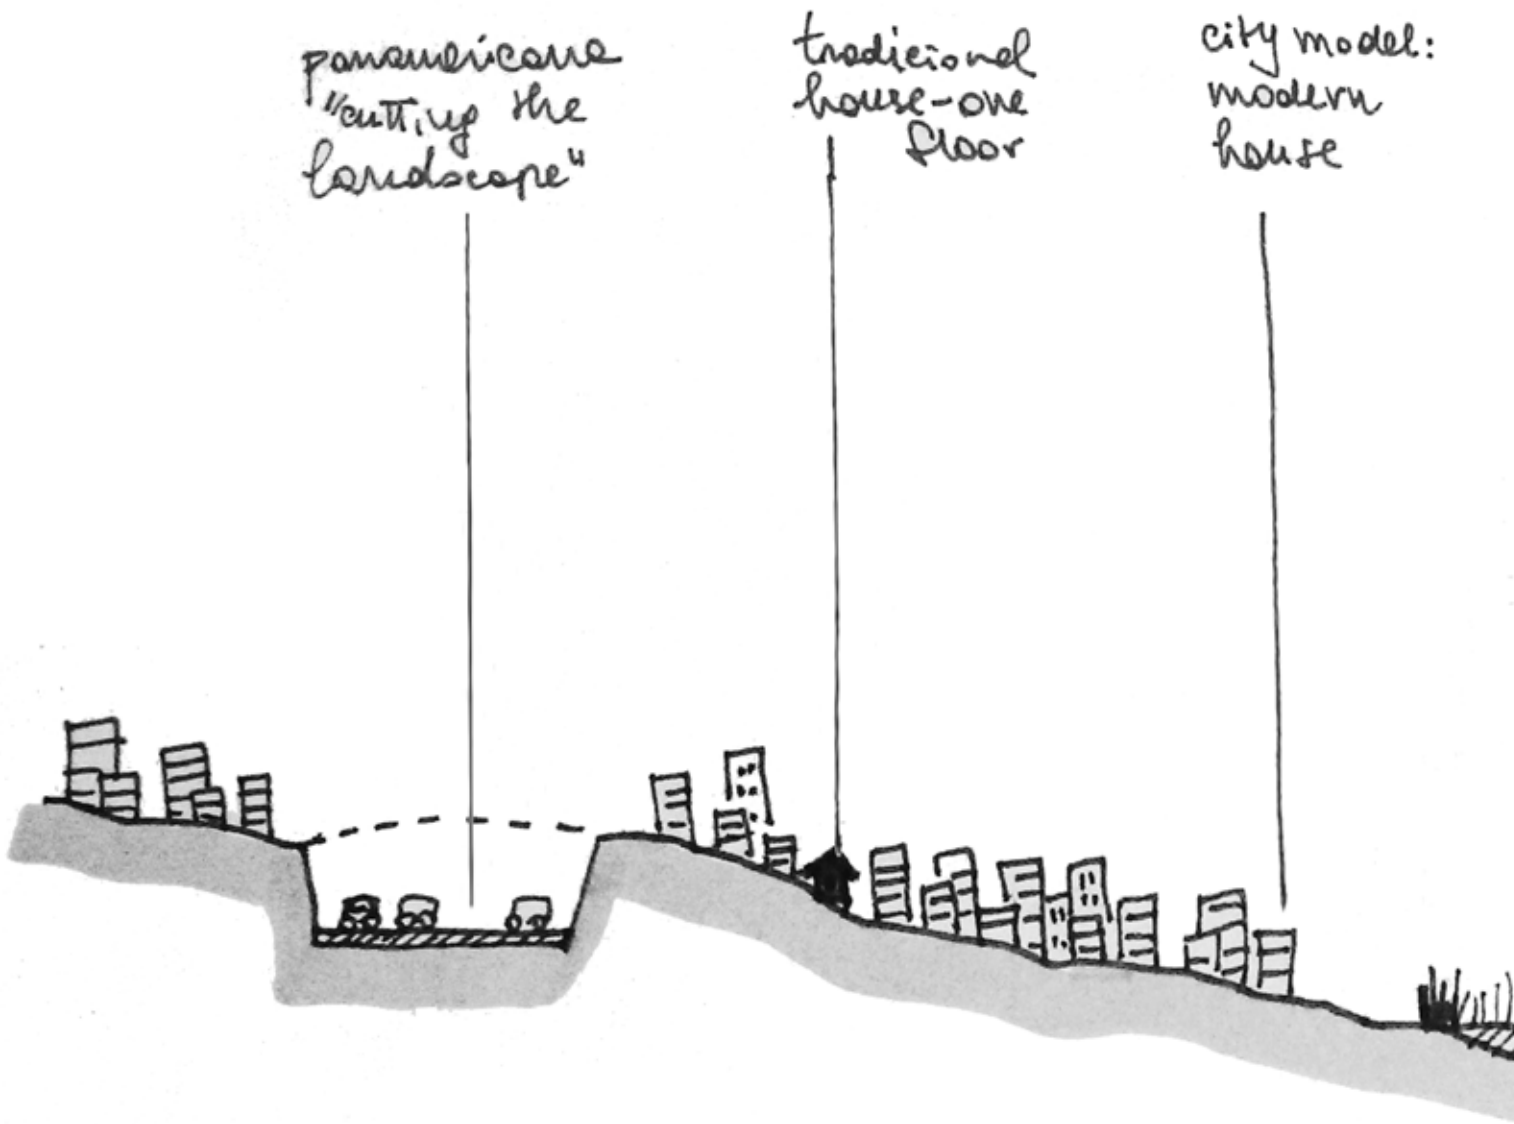 panamericana
"cutting the
landscape"
tradicional
house-one
floor
city model:
modern
house